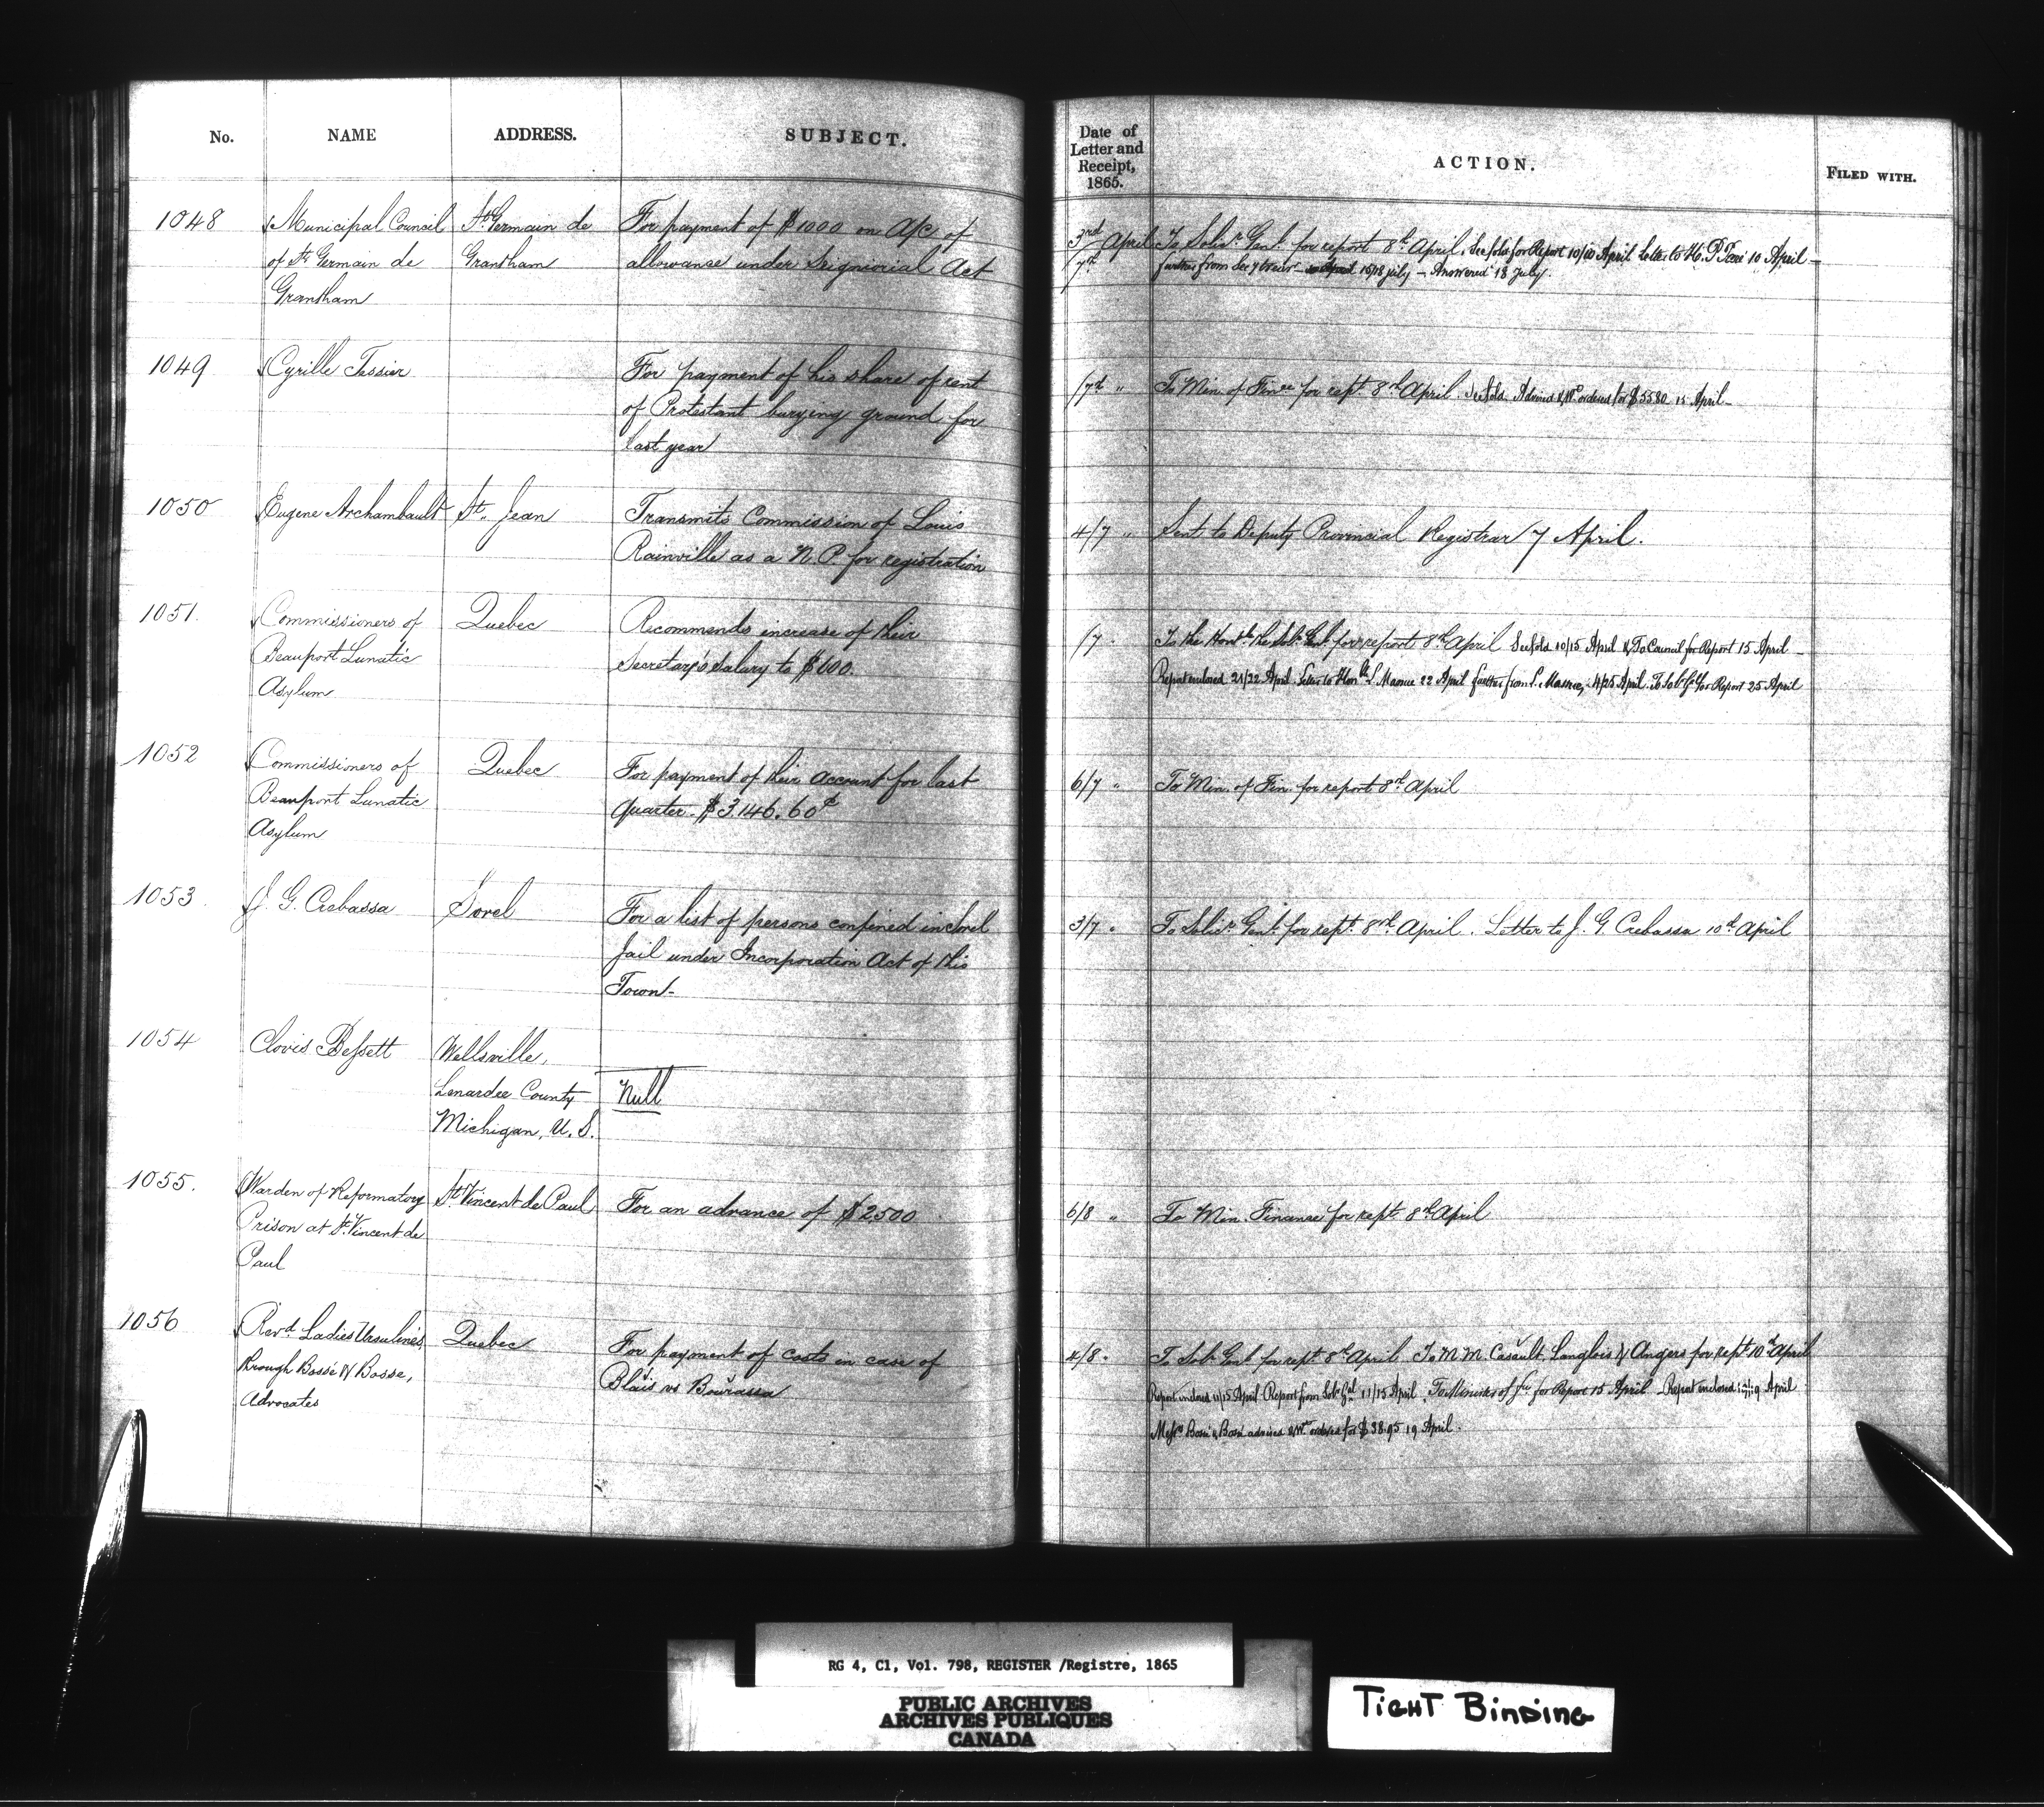 No.
NAME
ADDRESS.
SUBJECT.
Date of
Letter and
Receipt,
1865.
ACTION.
FILED WITH.
1048
Municipal Council
of St Germain de
Grantham
St Germain de
Grantham
For payment of $1000 on A/c of
allowance under Seigniorial Act
3rd April
7th
To Solr. Genl. for report 8th April. See fold for Report 10/10 April Letter to 10 April -
further from 15/18 july - Answered 18 July.
1049
Cyrille Tessier
For payment of his share of rent
of Protestant burying ground for
last year
/7th "
To Min. of Fince for rept. 8th April. See fold. Advised & Wt. ordered for 15 April -
1050
Eugene Archambault
St. Jean
Transmits Commission of Louis
Rainville as a N.P. for registration
4/7 "
Sent to Deputy Provincial Registrar 7 April.
1051.
Commissioners of
Beauport Lunatic
Asylum
Quebec
Recommends increase of their
Secretary's Salary to $600.
/7 .
To the Honble the Solr. Genl. for report 8th April See fold 10/15 April & To Council for Report 15 April -
Report enclosed 21/22 April. Letter to Honble L. 22 April further from L. 4/25 April. To Sol Gl for Report 25 April
1052
Commissioners of
Beauport Lunatic
Asylum
Quebec
For payment of their account for last
Quarter. $3.146.60¢
6/7 "
To Min. of Fin. for report 8th April
1053.
J. G. Crebassa
Sorel
For a list of persons confined in Sorel
Jail under Incorporation Act of this
Town -
3/7 "
To Solir. Genl. for rept. 8th April. Letter to J. G. Crebassa 10th April
1054
Clovis Bessett
Wellsville,
Lenardee County
Michigan, U.S.
Null
1055.
Warden of Reformatory
Prison at St. Vincent de
Paul
St. Vincent de Paul
For an advance of $2500
6/8 "
To Min. Finance for rept. 8th April
1056
Revd. Ladies Ursulines
through Bossé & Bosse,
Advocates
Quebec
For payment of costs in case of
Blais vs Bourassa
4/8 .
To Solr. Genl. for rept. 8th April. To M.M. Casault, Langlois & Angers for rept. 10th April
Report enclosed 11/15 April. Report from Solr. Gal 11/15 April. To Minister of for Report 15 April. Report enclosed April
Messrs Bossé & Bossé advised & Wt. ordered for $38.95 19 April.
RG 4, C1, Vol. 798, REGISTER /Registre, 1865
PUBLIC ARCHIVES
ARCHIVES PUBLIQUES
CANADA
TIGHT BINDING